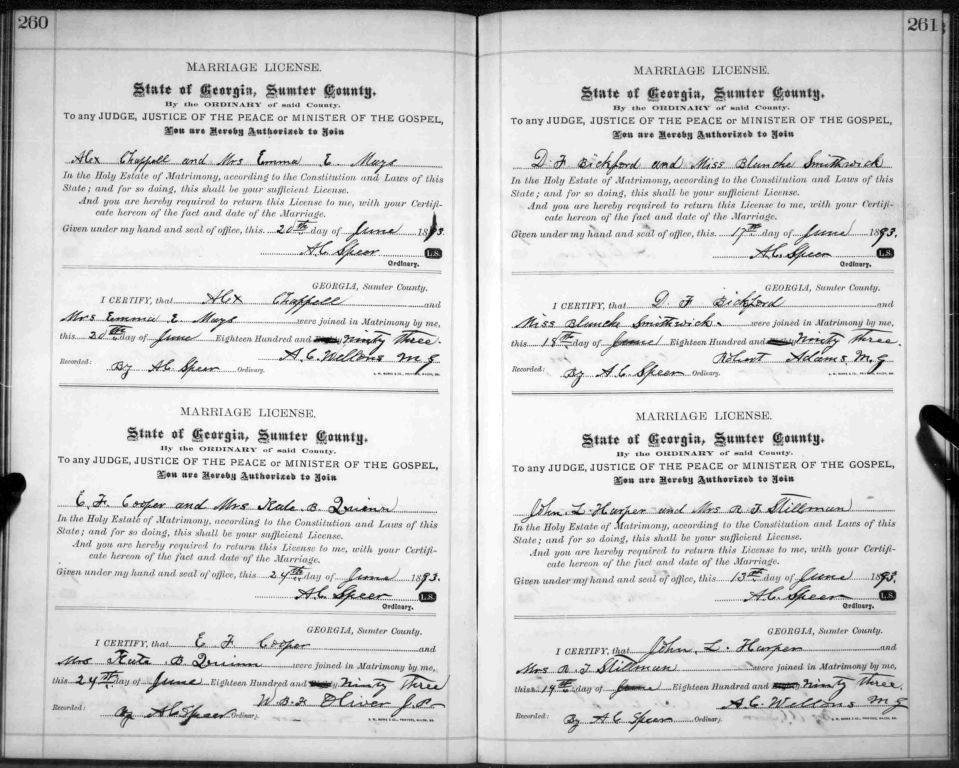 260
MARRIAGE LICENSE.
State of Georgia, Sumter County.
By the ORDINARY of said County.
To any JUDGE, JUSTICE OF THE PEACE or MINISTER OF THE GOSPEL,
You are Hereby Authorized to Join
Alex Chappell and Mrs Emma E. Mays
In the Holy Estate of Matrimony, according to the Constitution and Laws of this
State; and for so doing, this shall be your sufficient License.
And you are hereby required to return this License to me, with your Certifi-
cate hereon of the fact and date of the Marriage.
Given under my hand and seal of office, this 20th day of June 1893.
A.C. Speer L.S.
Ordinary.
GEORGIA, Sumter County.
I CERTIFY, that Alex Chappell and
Mrs Emma E. Mays were joined in Matrimony by me,
this 20th day of June Eighteen Hundred and Ninty three.
A. C. Wellons M.G
Recorded: By A.C. Speer Ordinary.
MARRIAGE LICENSE.
State of Georgia, Sumter County.
By the ORDINARY of said County.
To any JUDGE, JUSTICE OF THE PEACE or MINISTER OF THE GOSPEL,
You are Hereby Authorized to Join
E. F. Cooper and Mrs Kate B. Quinn
In the Holy Estate of Matrimony, according to the Constitution and Laws of this
State; and for so doing, this shall be your sufficient License.
And you are hereby required to return this License to me, with your Certifi-
cate hereon of the fact and date of the Marriage.
Given under my hand and seal of office, this 24th day of June 1893.
A.C. Speer L.S.
Ordinary.
GEORGIA, Sumter County.
I CERTIFY, that E F Cooper and
Mrs Kate B Quinn were joined in Matrimony by me,
this 24th day of June Eighteen Hundred and Ninty three
W.B.F Oliver J.P.
Recorded: By A.C. Speer Ordinary.
261
MARRIAGE LICENSE.
State of Georgia, Sumter County.
By the ORDINARY of said County.
To any JUDGE, JUSTICE OF THE PEACE or MINISTER OF THE GOSPEL,
You are Hereby Authorized to Join
D. F Bickford and Miss Blanche Smithwick
In the Holy Estate of Matrimony, according to the Constitution and Laws of this
State; and for so doing, this shall be your sufficient License.
And you are hereby required to return this License to me, with your Certifi-
cate hereon of the fact and date of the Marriage.
Given under my hand and seal of office, this 17th day of June 1893.
A.C. Speer L.S.
Ordinary.
GEORGIA, Sumter County.
I CERTIFY, that D F Bickford and
Miss Blanche Smithwick. were joined in Matrimony by me,
this 18th day of June Eighteen Hundred and Ninty three.
Robert Adams, M.G
Recorded: By A.C. Speer Ordinary.
MARRIAGE LICENSE.
State of Georgia, Sumter County.
By the ORDINARY of said County.
To any JUDGE, JUSTICE OF THE PEACE or MINISTER OF THE GOSPEL,
You are Hereby Authorized to Join
John L. Harper and Mrs R. J Stillman
In the Holy Estate of Matrimony, according to the Constitution and Laws of this
State; and for so doing, this shall be your sufficient License.
And you are hereby required to return this License to me, with your Certifi-
cate hereon of the fact and date of the Marriage.
Given under my hand and seal of office, this 13th day of June 1893.
A.C. Speer L.S.
Ordinary.
GEORGIA, Sumter County.
I CERTIFY, that John L. Harper and
Mrs R J Stillman were joined in Matrimony by me,
this 14th day of June Eighteen Hundred and Ninty three.
A.C. Wellons M G
Recorded: By A C Speer Ordinary.